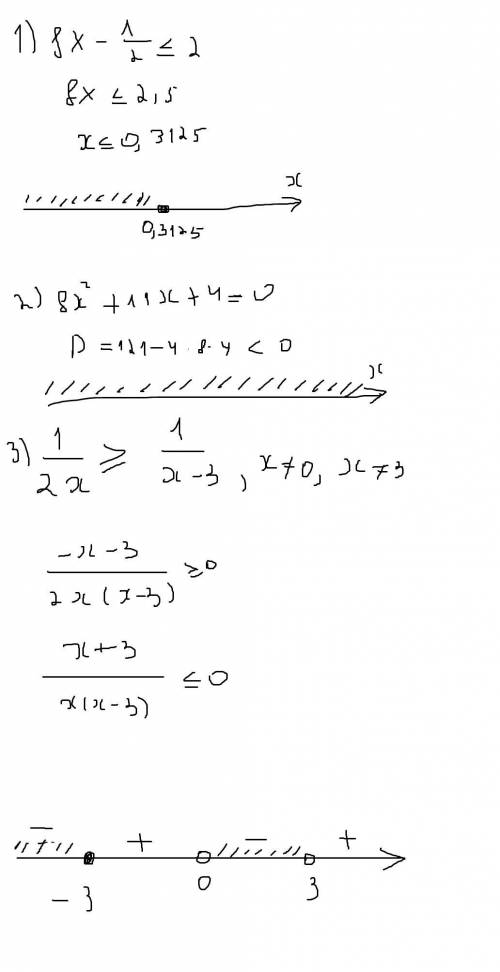 1) 8x - 1/2 ≤ 2
8x ≤ 2,5
x ≤ 0,3125
x
0,3125
2) 8x² + 11x + 4 = 0
D = 121 - 4 · 8 · 4 < 0
x
3) 1/2x ≥ 1/x-3, x≠0, x≠3
-x-3/2x(x-3) ≥0
x+3/x(x-3) ≤ 0
- + - +
-3 0 3